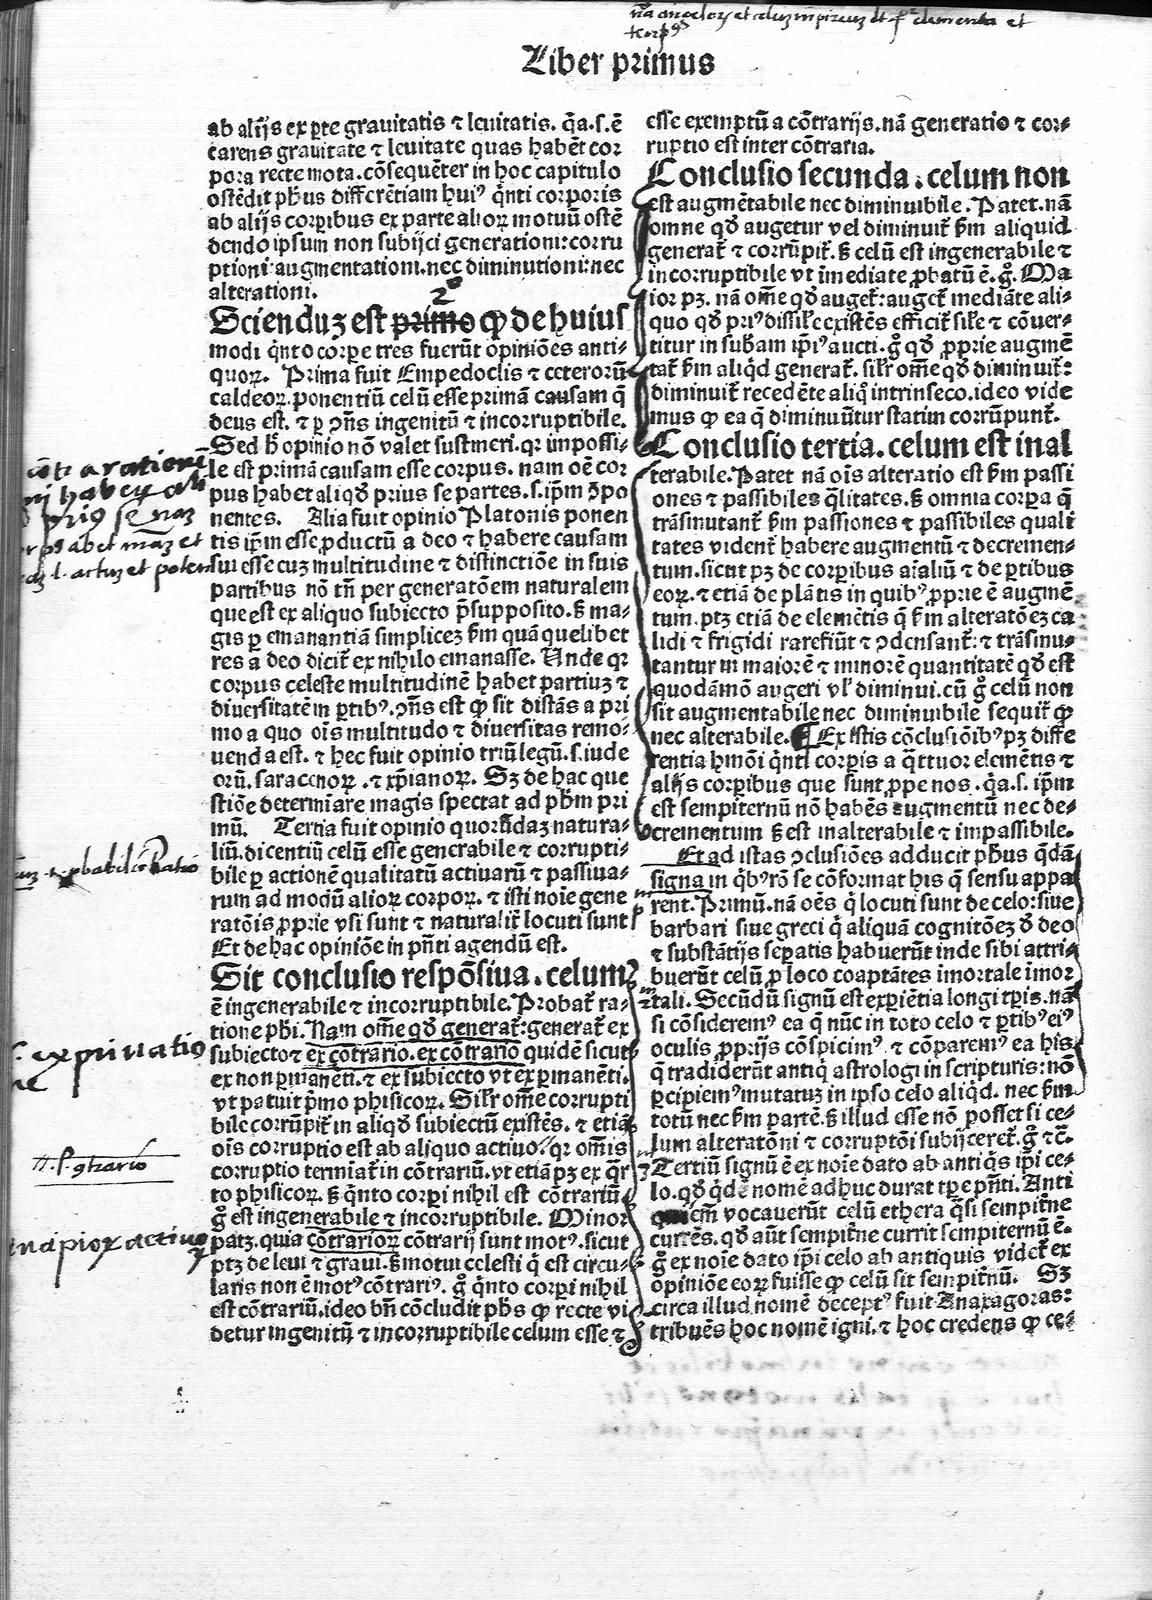 Liber primus
ab alijs ex ꝑte grauitatis ⁊ leuitatis. q̄a.s.ē
carens grauitate ⁊ leuitate quas habēt cor
pora recte mota. cōsequēter in hoc capitulo
ostēdit pħus differētiam huiꝰ q̄nti corporis
ab alijs corꝑibus ex parte alioꝝ motuū ostē
dendo ipsum non subijci generationi: corru
ptioni: augmentationi. nec diminutioni: nec
alterationi.
Scienduz est primo ꝙ de huius
modi q̇nto corꝑe tres fuerūt opiniōes anti-
quoꝝ. Prima fuit Empedoclis ⁊ ceterorū
caldeoꝝ ponentiū celū esse primā causam q̄
deus est. ⁊ ꝑ ↄ̄ns ingenitū ⁊ incorruptibile.
Sed ħ opinio nō valet sustineri. qꝛ impossi-
le est primā causam esse corpus. nam oē cor
pus habet aliqd̓ prius se partes. s. ip̄m ꝯpo
nentes. Alia fuit opinio Platonis ponen
tis ip̄m esse ꝓductū a deo ⁊ habere causam
sui esse cuz multitudine ⁊ distinctiōe in suis
partibus nō tn̄ per generatōem naturalem
que est ex aliquo subiecto p̄supposito. ẞ ma-
gis ꝑ emanantiā simplicez ẞm quā quelibet
res a deo dicit̄ ex nihilo emanasse. Unde qꝛ
corpus celeste multitudinē habet partiuz ⁊
diuersitatē in ꝑtibꝰ. ↄ̄ns est ꝙ sit distās a pri
mo a quo oīs multitudo ⁊ diuersitas remo-
uenda est. ⁊ hec fuit opinio triū legū. s. iude
orū. saracenoꝝ. ⁊ xp̄ianoꝝ. Sz de hac que
stiōe determīare magis spectat ad pħm pri
mū. Tertia fuit opinio quorūdaz natura-
liū. dicentiū celū esse generabile ⁊ corrupti-
bile ꝑ actionē qualitatū actiuarū ⁊ passiua-
rum ad modū alioꝝ corpoꝝ. ⁊ isti noīe gene
ratōis ꝓprie vsi sunt ⁊ naturalit̄ locuti sunt
Et de hac opiniōe in pn̄ti agendū est.
Sit conclusio respōsiua. celum
ē ingenerabile ⁊ incorruptibile. Probat̄ ra-
tione pħi. Nam om̄e qd̓ generat̄: generat̄ ex
subiecto ⁊ ex cōtrario. ex cōtrario quidē sicut
ex non ꝑmanēti. ⁊ ex subiecto vt ex ꝑmanēti.
vt patuit p̄mo phisicoꝝ. Silr̄ om̄e corrupti
bile corrūpit̄ in aliqd̓ subiectū existēs. ⁊ etiā
oīs corruptio est ab aliquo actiuo. qꝛ om̄is
corruptio termīat̄ in cōtrariū. vt etiā pz ex q̄r
to phisicoꝝ. ẞ q̇nto corꝑi nihil est cōtrariū
g̊ est ingenerabile ⁊ incorruptibile. Minor
patz. quia cōtrarioꝝ cōtrarij sunt motꝰ. sicut
ptz de leui ⁊ graui. ẞ motui celesti q̇ est circu-
laris non ē motꝰ cōtrariꝰ. g̊ q̇nto corꝑi nihil
est cōtrariū. ideo bn̄ cōcludit pħs ꝙ recte vi
detur ingenitū ⁊ incorruptibile celum esse ⁊
esse exemptū a cōtrarijs. nā generatio ⁊ cor-
ruptio est inter cōtraria.
Conclusio secunda. celum non
est augmētabile nec diminuibile. Patet. nā
omne qd̓ augetur vel diminuit̄ ẞm aliquid
generat̄ ⁊ corrūpit̄. ẞ celū est ingenerabile ⁊
incorruptibile vt īmediate ꝓbatū ē. g̊. Ma
ior pz. nā om̄e qd̓ auget̄: auget̄ mediāte ali-
quo qd̓ priꝰ dissile existēs efficit̄ sile ⁊ cōuer-
titur in subam ip̄iꝰ aucti. g̊ qd̓ ꝓprie augmē
tat̄ ẞm aliqd̓ generat̄. silr̄ om̄e qd̓ diminuit̄:
diminuit̄ recedēte aliq̊ intrinseco. ideo vide
mus ꝙ ea q̄ diminuūtur statim corrūpunt̄.
Conclusio tertia. celum est inal
terabile. Patet nā oīs alteratio est ẞm passi
ones ⁊ passibiles q̄litates. ẞ omnia corꝑa q̄
trāsmutant̄ ẞm passiones ⁊ passibiles quali
tates vident̄ habere augmentū ⁊ decremen-
tum. sicut pz de corꝑibus aīaliū ⁊ de ꝑtibus
eoꝝ. ⁊ etiā de plātis in quibꝰ ꝓprie ē augmē
tum. ptz etiā de elemētis q̄ ẞm alteratōez ca
lidi ⁊ frigidi rarefiūt ⁊ ↄdensant̄: ⁊ trāsmu-
tantur in maiorē ⁊ minorē quantitatē qd̓ est
quodāmō augeri vl̓ diminui. cū g̊ celū non
sit augmentabile nec diminuibile sequit̄ ꝙ
nec alterabile. ¶ Ex istis cōclusiōibꝰ pz diffe
rentia hmōi q̇nti corꝑis a q̄ttuor elemētis ⁊
alijs corꝑibus que sunt ꝓpe nos. q̄a. s. ip̄m
est sempiternū nō habēs augmentū nec de-
crementum ẞ est inalterabile ⁊ impassibile.
Et ad istas ↄclusiōes adducit pħus q̄dā
signa in q̇bꝰ rō se cōformat his q̄ sensu appa
rent. Primū. nā oēs q̇ locuti sunt de celo: siue
barbari siue greci q̇ aliquā cognitōez d̓ deo
⁊ substātijs seꝑatis habuerūt inde sibi attri-
buerūt celū ꝓ loco coaptātes īmortale īmor
tali. Secūdū signū est exꝑiētia longi tꝑis. nā
si cōsideremꝰ ea q̄ nūc in toto celo ⁊ ꝑtibꝰ eiꝰ
oculis ꝓprijs cōspicimꝰ. ⁊ cōparemꝰ ea his
q̄ tradiderūt antiq̇ astrologi in scripturis: nō
ꝑcipiemꝰ mutatuz in ipso celo aliqd̓. nec ẞm
totū nec ẞm partē. ẞ illud esse nō posset si ce-
lum alteratōni ⁊ corruptōi subijceret̄. g̊ ⁊c̄.
Tertiū signū ē ex noīe dato ab antiq̇s ip̄i ce-
lo. qd̓ q̇dē nomē adhuc durat tꝑe pn̄ti. Anti
 vocauerūt celū ethera q̄si sempit̄ne
currēs. qd̓ aūt sempit̄ne currit sempiternū ē.
g̊ ex noīe dato ip̄i celo ab antiquis videt̄ ex
opiniōe eoꝝ fuisse ꝙ celū sit sempit̄nū. Sz
circa illud nomē deceptꝰ fuit Anaxagoras:
tribuēs hoc nomē igni. ⁊ hoc credens ꝙ ce-